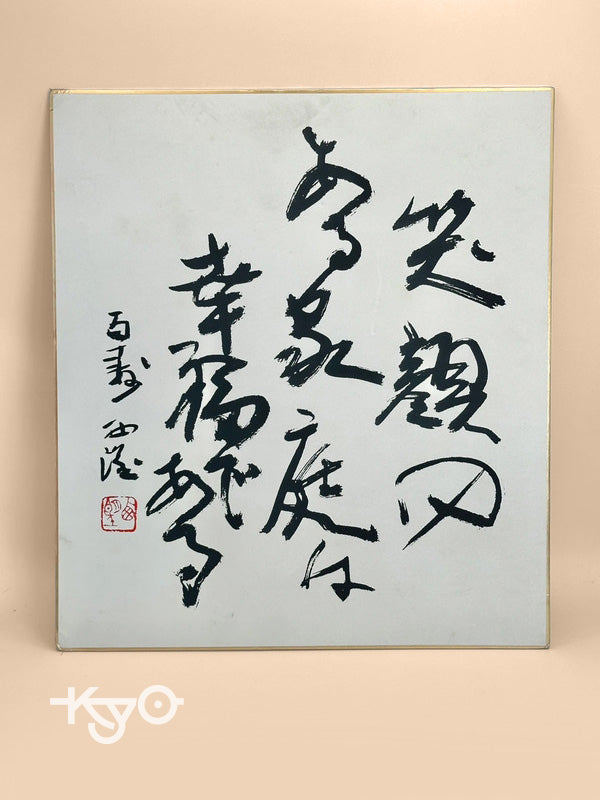 笑顔の
ある家庭は
幸福である
百寿
Kyo